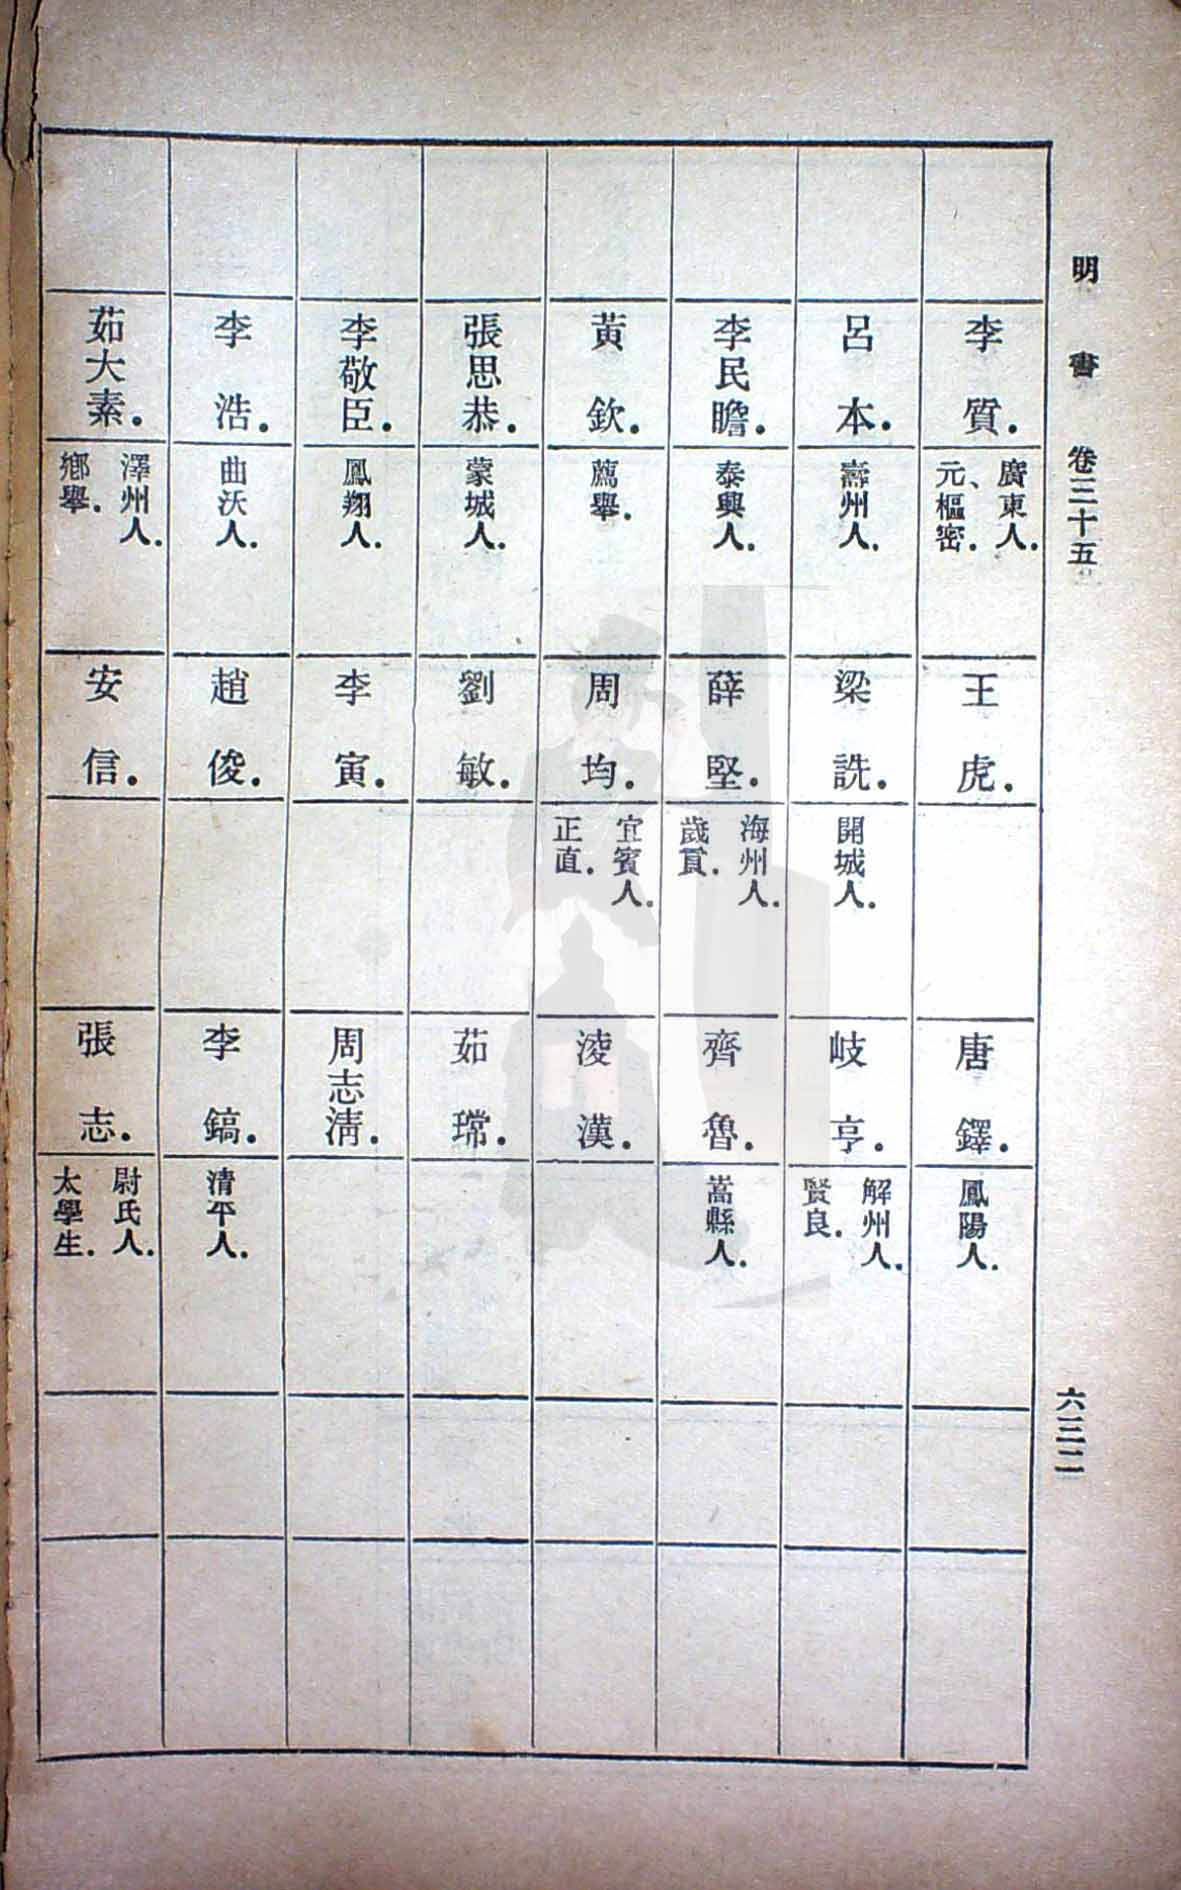 明書 卷三十五
六三二
李質.
廣東人.
元、樞密.
王虎.
唐鐸.
鳳陽人.
呂本.
壽州人.
梁詵.
開城人.
岐亨.
解州人.
賢良.
李民瞻.
泰興人.
薛堅.
海州人.
歲貢.
齊魯.
嵩縣人.
黃欽.
薦舉.
周均.
宜賓人.
正直.
淩漢.
張思恭.
蒙城人.
劉敏.
茹瑺.
李敬臣.
鳳翔人.
李寅.
周志淸.
李浩.
曲沃人.
趙俊.
李鎬.
清平人.
茹大素.
澤州人.
鄉舉.
安信.
張志.
尉氏人.
太學生.